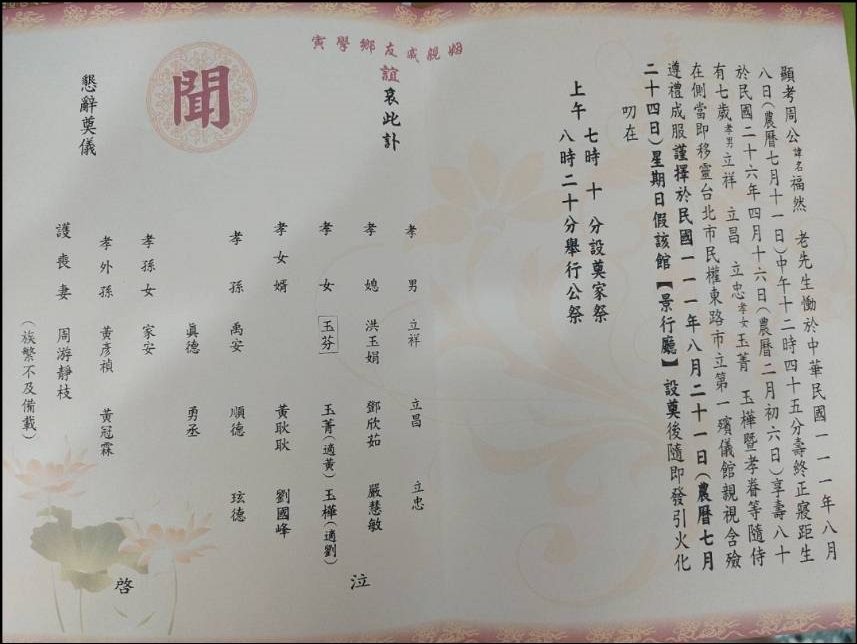 顯考周公諱名福然 老先生慟於中華民國一一一年八月
八日(農曆七月十一日)中午十二時四十五分壽終正寢距生
於民國二十六年四月十六日(農曆二月初六日)享壽八十
有七歲孝男立祥 立昌 立忠孝女玉菁 玉樺暨孝眷等隨侍
在側當即移靈台北市民權東路市立第一殯儀館親視含殮
遵禮成服謹擇於民國一一一年八月二十一日(農曆七月
二十四日)星期日假該館【景行廳】設奠後隨即發引火化
叨在
上午 七時 十 分設奠家祭
八時二十分舉行公祭
寅學鄉友戚親姻
誼哀此訃
聞
懇辭奠儀
孝男 立祥 立昌 立忠
孝媳 洪玉娟 鄧欣茹 嚴慧敏
孝女 玉芬 玉菁(適黃) 玉樺(適劉) 泣
孝女婿 黃耿耿 劉國峰
孝孫 禹安 順德 玹德
眞德 勇丞
孝孫女 家安
孝外孫 黃彥禎 黃冠霖
護喪妻 周游靜枝
(族繁不及備載)
啓